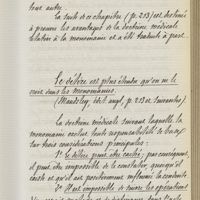 tout autre.
La suite de ce chapitre (p. 213) est destinée
à prouver les avantages de la doctrine médicale
relative à la monomanie et a été traduite à part.
Le délire est plus étendu qu'on ne le
croit dans les monomanies.
(Maudsley, ibid. angl., p. 213 et suivantes).
La doctrine médicale suivant laquelle la
monomanie exclut toute responsabilité se base
sur trois considérations principales :
1° Le délire peut être caché ; par conséquent,
il peut être impossible de le constater quoiqu'il
existe et qu'il ait positivement influencé la conduite.
2° Il est impossible de suivre les opérations